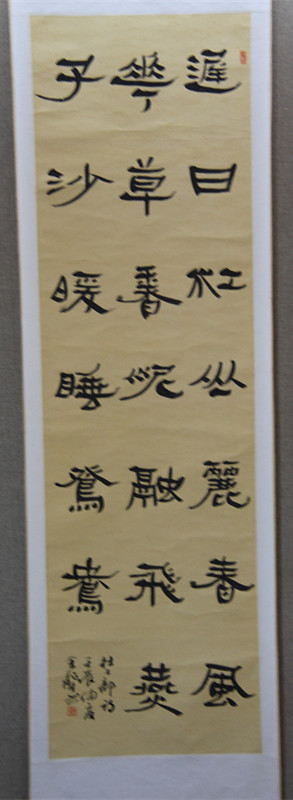 遲日江山麗春風
華草香泥融飛燕
子沙暖睡鴛鴦
杜工部詩
壬辰